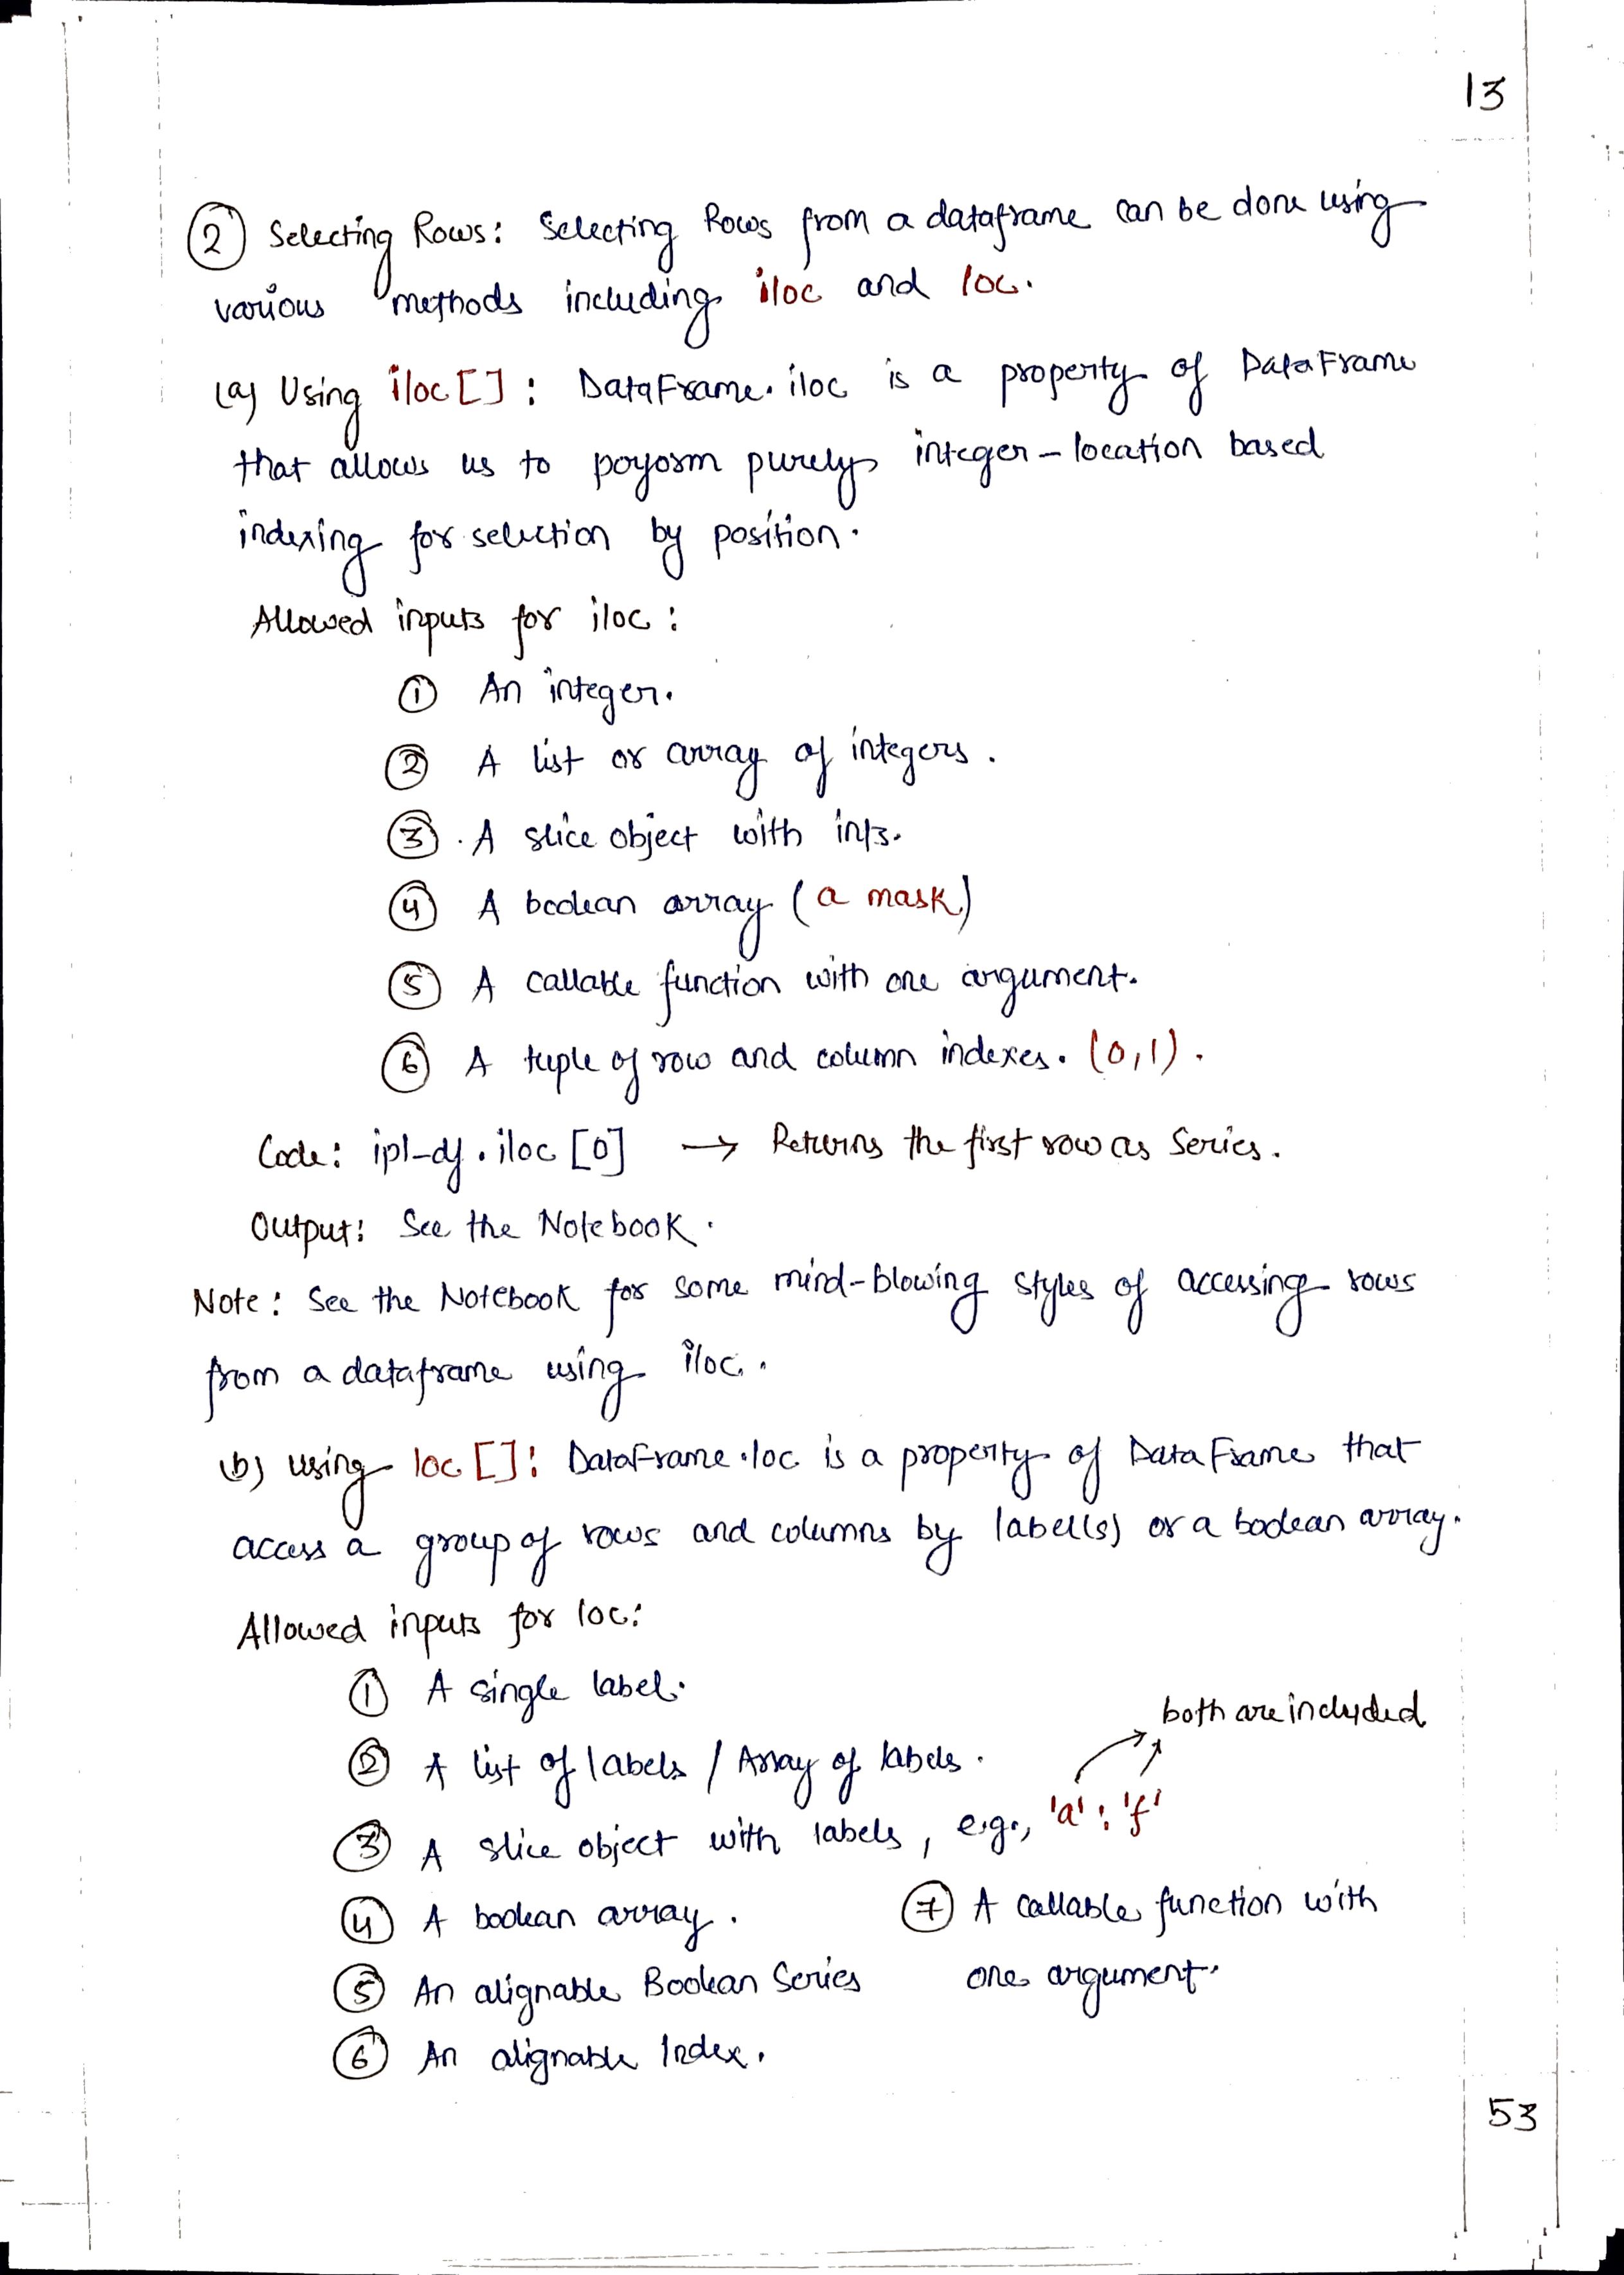 13
② Selecting Rows: Selecting Rows from a dataframe can be done using
various methods including iloc and loc.
(a) Using iloc[]: DataFrame.iloc is a property of DataFrame
that allows us to perform purely integer-location based
indexing for selection by position.
Allowed inputs for iloc:
① An integer.
② A list or array of integers.
③ A slice object with ints.
④ A boolean array (a mask)
⑤ A callable function with one argument.
⑥ A tuple of row and column indexes. (0,1).
Code: ipl_df.iloc[0] → Returns the first row as Series.
Output: See the Notebook.
Note: See the Notebook for some mind-blowing styles of accessing rows
from a dataframe using iloc.
(b) using loc[]: DataFrame.loc is a property of DataFrame that
access a group of rows and columns by label(s) or a boolean array.
Allowed inputs for loc:
① A single label.
both are included
② A list of labels / Array of labels.
③ A slice object with labels, e.g., 'a':'f'
④ A boolean array.
⑤ An alignable Boolean Series
⑥ An alignable Index.
⑦ A callable function with
one argument.
53